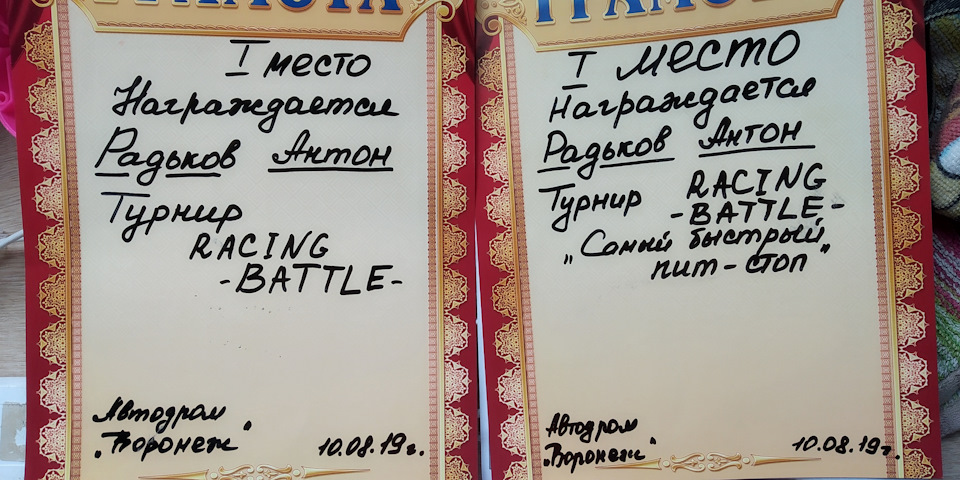 ГРАМОТА
I место
Награждается
Радьков Антон
Турнир
RACING
-BATTLE-
Автодром
„Воронеж"
10.08.19г.
ГРАМОТА
I место
Награждается
Радьков Антон
Турнир RACING
-BATTLE-
„Самый быстрый
пит-стоп"
Автодром
„Воронеж"
10.08.19г.